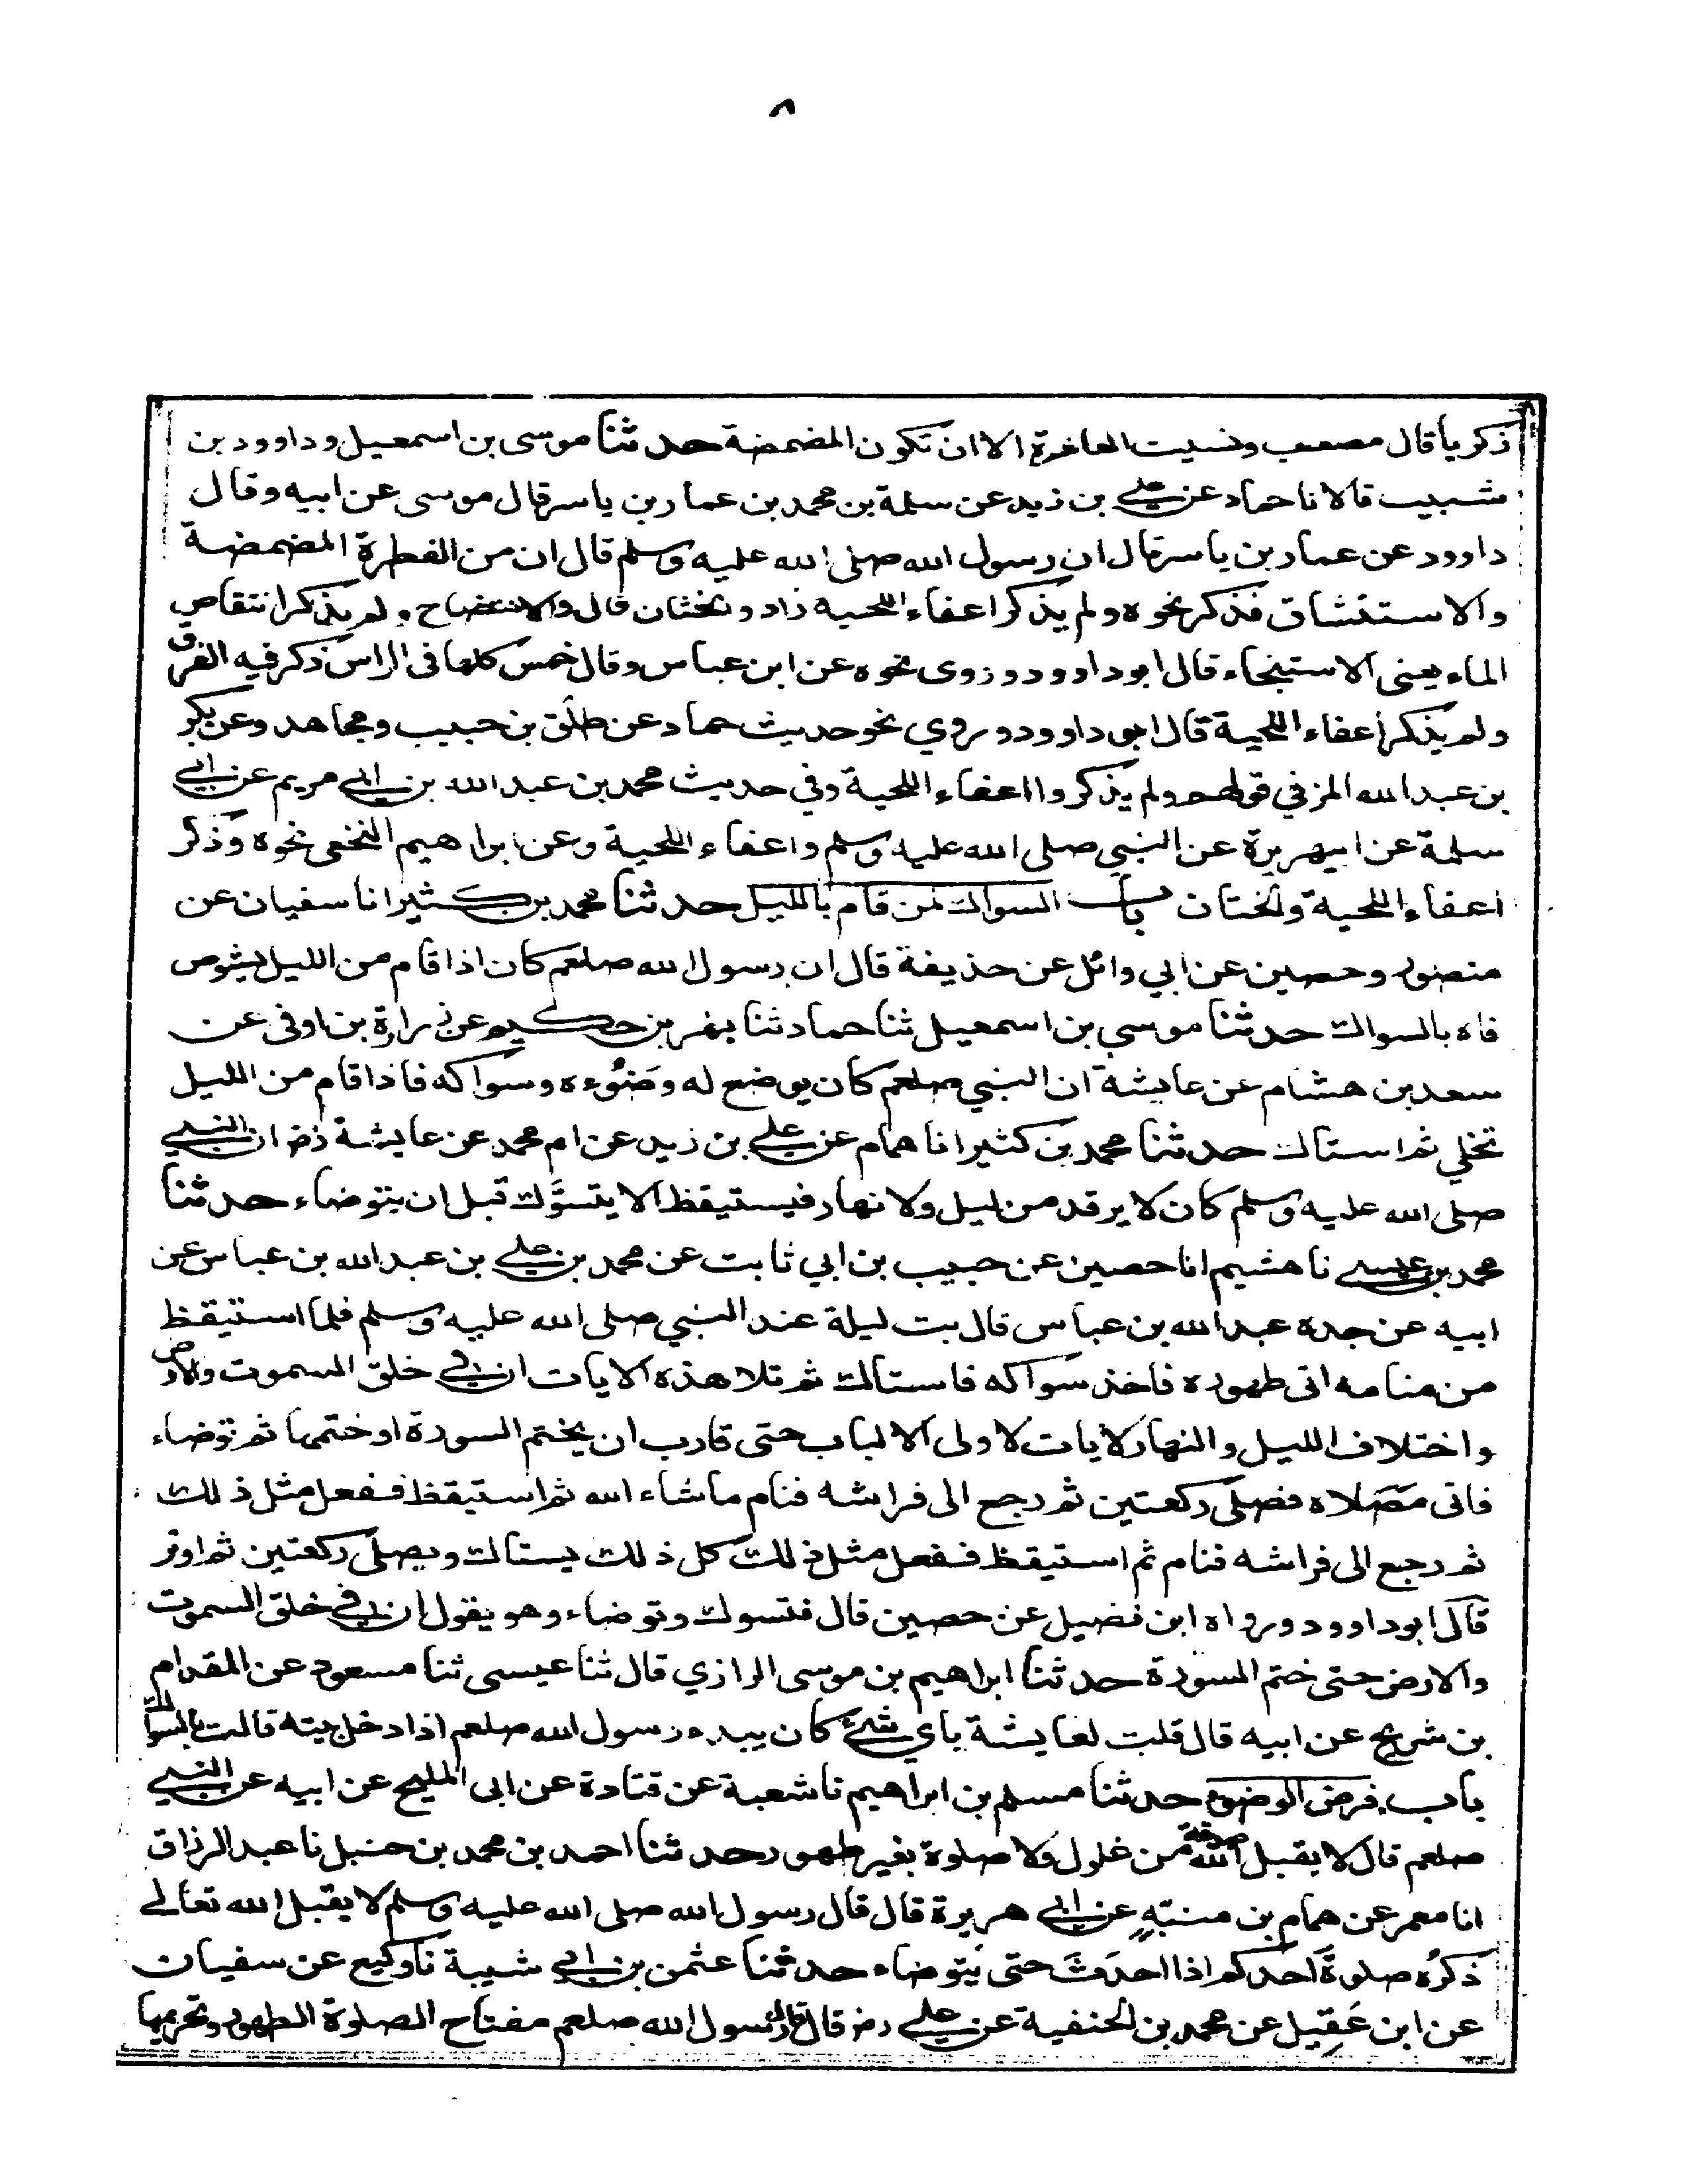 ٨
ذكريا قال مصعب ونسيت العاشرة الا ان تكون المضمضة حدثنا موسى بن اسمعيل وداوود بن
شبيب قالا نا حماد عن علي بن زيد عن سلمة بن محمد بن عمار بن ياسر قال موسى عن ابيه وقال
داوود عن عمار بن ياسر قال ان رسول الله صلى الله عليه وسلم قال ان من الفطرة المضمضة
والاستنشاق فذكر نحوه ولم يذكر اعفاء اللحية زاد ونختان قال والانتضاح ولم يذكر انتقاص
الماء يعنى الاستنجاء قال ابو داوود وروى نحوه عن ابن عباس وقال خمس كلها فى الراس ذكر فيه الفرق
ولم يذكر اعفاء اللحية قال ابو داوود وروي نحو حديث حماد عن طلق بن حبيب ومجاهد وعن بكر
بن عبد الله المزني قولهم ولم يذكروا اعفاء اللحية وفي حديث محمد بن عبد الله بن ابي مريم عن ابي
سلمة عن ابيهريرة عن النبي صلى الله عليه وسلم واعفاء اللحية وعن ابراهيم النخعى نحوه وذكر
اعفاء اللحية ولختان باب السواك لمن قام بالليل حدثنا محمد بن كثير انا سفيان عن
منصور وحصين عن ابي وائل عن حذيفة قال ان رسول الله صلعم كان اذا قام من الليل يشوص
فاه بالسواك حدثنا موسي بن اسمعيل ثنا حماد ثنا بهز بن حكيم عن زرارة بن اوفى عن
سعد بن هشام عن عايشة ان النبي صلعم كان يوضع له وضوءه وسواكه فاذا قام من الليل
تخلي ثم استاك حدثنا محمد بن كثير انا همام عن علي بن زيد عن ام محمد عن عايشة رض ان النبي
صلى الله عليه وسلم كان لا يرقد من ليل ولا نهار فيستيقظ الا يتسوَّك قبل ان يتوضاء حدثنا
محمد بن عيسى نا هشيم انا حصين عن حبيب بن ابي ثابت عن محمد بن علي بن عبد الله بن عباس عن
ابيه عن جده عبد الله بن عباس قال بت ليلة عند النبي صلى الله عليه وسلم فلما استيقظ
من منامه اتى طهوره فاخذ سواكه فاستاك ثم تلا هذه الايات ان في خلق السموت والارض
واختلاف الليل والنهار لايات لاولى الالباب حتى قارب ان يختم السورة او ختمها ثم توضاء
فاتى مصلاه فصلى ركعتين ثم رجع الى فراشه فنام ماشاء الله ثم استيقظ ففعل مثل ذلك
ثم رجع الى فراشه فنام ثم استيقظ ففعل مثل ذلك كل ذلك يستاك ويصلى ركعتين ثم اوتر
قال ابو داوود ورواه ابن فضيل عن حصين قال فتسوك وتوضاء وهو يقول ان في خلق السموت
والارض حتى ختم السورة حدثنا ابراهيم بن موسى الرازي قال ثنا عيسى ثنا مسعود عن المقدام
بن شريح عن ابيه قال قلت لعايشة باي شئ كان يبدء رسول الله صلعم اذا دخل بيته قالت بالسواك
باب فرض الوضوء حدثنا مسلم بن ابراهيم نا شعبة عن قتادة عن ابى المليح عن ابيه عن النبي
صلعم قال لا يقبل الله صدقة من غلول ولا صلوة بغير طهور حدثنا احمد بن محمد بن حنبل نا عبد الرزاق
انا معمر عن همام بن منبّهٍ عن ابي هريرة قال قال رسول الله صلى الله عليه وسلم لا يقبل الله تعالى
ذكرُه صلوة احدكم اذا احدَثَ حتى يتوضاء حدثنا عثمن بن ابي شيبة نا وكيع عن سفيان
عن ابن عَقِيل عن محمد بن الحنفية عن علي رض قال قال رسول الله صلعم مفتاح الصلوة الطهور وتحريمها